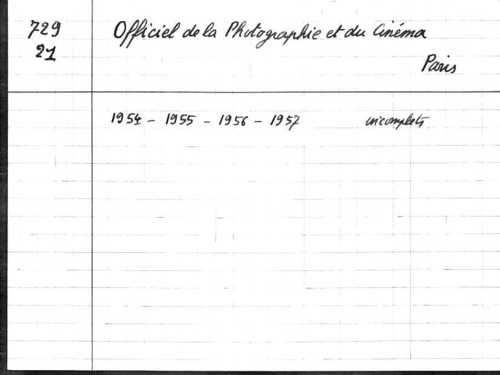 729 Officiel de la Photographie et du Cinéma
21
Paris
1954 - 1955 - 1956 - 1957 incomplets